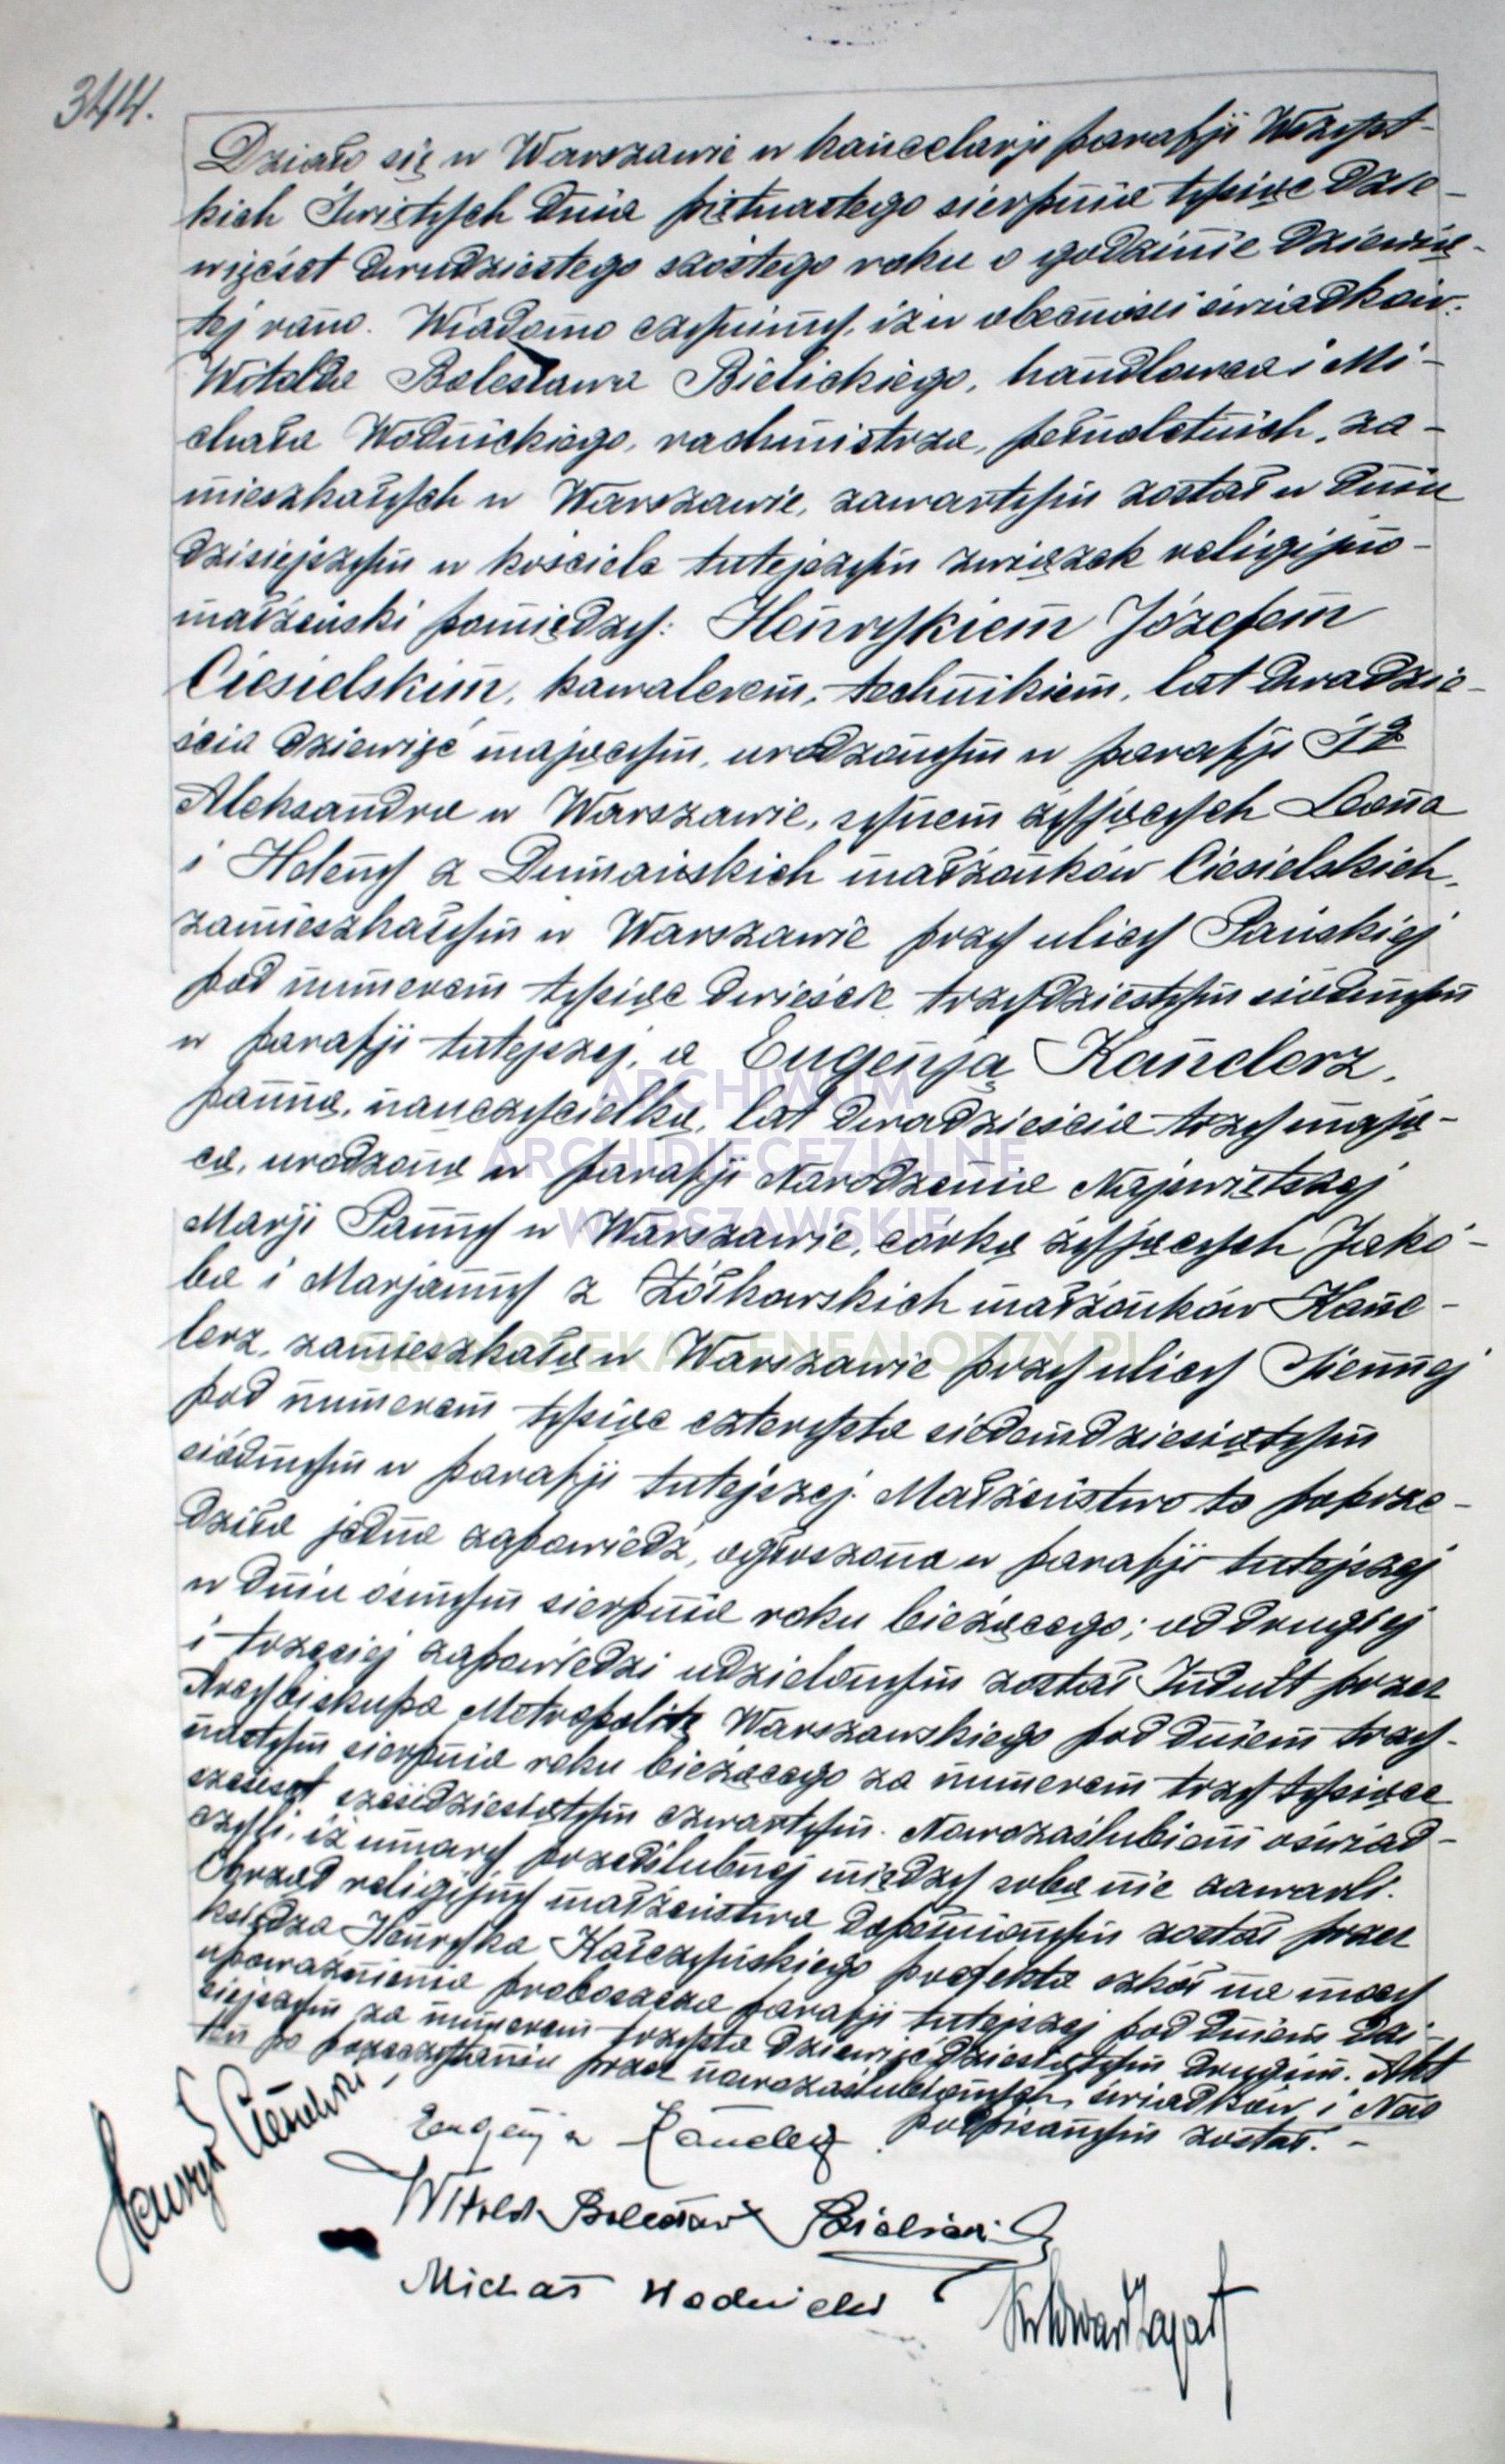 344.
Działo się w Warszawie w kancelarji parafji Wszyst-
kich Świętych dnia piętnastego sierpnia tysiąc dzie-
więćset dwudziestego szóstego roku o godzinie dziewią-
tej rano. Wiadomo czynimy, iż w obecności świadków:
Witolda Bolesława Bielickiego, handlowca i Mi-
chała Wodnickiego, rachmistrza, pełnoletnich, za-
mieszkałych w Warszawie, zawartym został w dniu
dzisiejszym w kościele tutejszym związek religijno-
małżeński pomiędzy: Henrykiem Józefem
Ciesielskim, kawalerem, technikiem, lat dwadzie-
ścia dziewięć mającym, urodzonym w parafji Śgo
Aleksandra w Warszawie, synem żyjących Leona
i Heleny z Dumańskich małżonków Ciesielskich,
zamieszkałym w Warszawie przy ulicy Pańskiej
pod numerem tysiąc dwieście trzydziestym siódmym
w parafji tutejszej, a Eugenją Kanclerz,
panną, nauczycielką, lat dwadzieścia trzy mają-
cą, urodzoną w parafji Narodzenia Najświętszej
Marji Panny w Warszawie, córką żyjących Jakó-
ba i Marjanny z Żółkowskich małżonków Kanc-
lerz, zamieszkałą w Warszawie przy ulicy Siennej
pod numerem tysiąc czterysta siedemdziesiątym
siódmym w parafji tutejszej. Małżeństwo to poprze-
dziła jedna zapowiedź, ogłoszona w parafji tutejszej
w dniu ósmym sierpnia roku bieżącego; od drugiej
i trzeciej zapowiedzi udzielonym został Indult przez
Arcybiskupa Metropolitę Warszawskiego pod dniem trzy-
nastym sierpnia roku bieżącego za numerem trzy tysiące
sześćset sześćdziesiątym czwartym. Nowozaślubieni oświad-
czyli, iż umowy przedślubnej między sobą nie zawarli.
Obrzęd religijny małżeństwa dopełnionym został przez
księdza Henryka Kałczyńskiego prefekta szkół na mocy
upoważnienia proboszcza parafji tutejszej pod dniem dzi-
siejszym za numerem trzysta dziewięćdziesiątym drugim. Akt
ten po przeczytaniu przez nowozaślubionych, świadków i Nas
podpisanym został. -
Henryk Ciesielski
Eugenja Kanclerz
Witold Bolesław Bielicki
Michał Wodnicki
ARCHIWUM
ARCHIDIECEZJALNE
WARSZAWSKIE
SKANOTEKA.GENEALODZY.PL